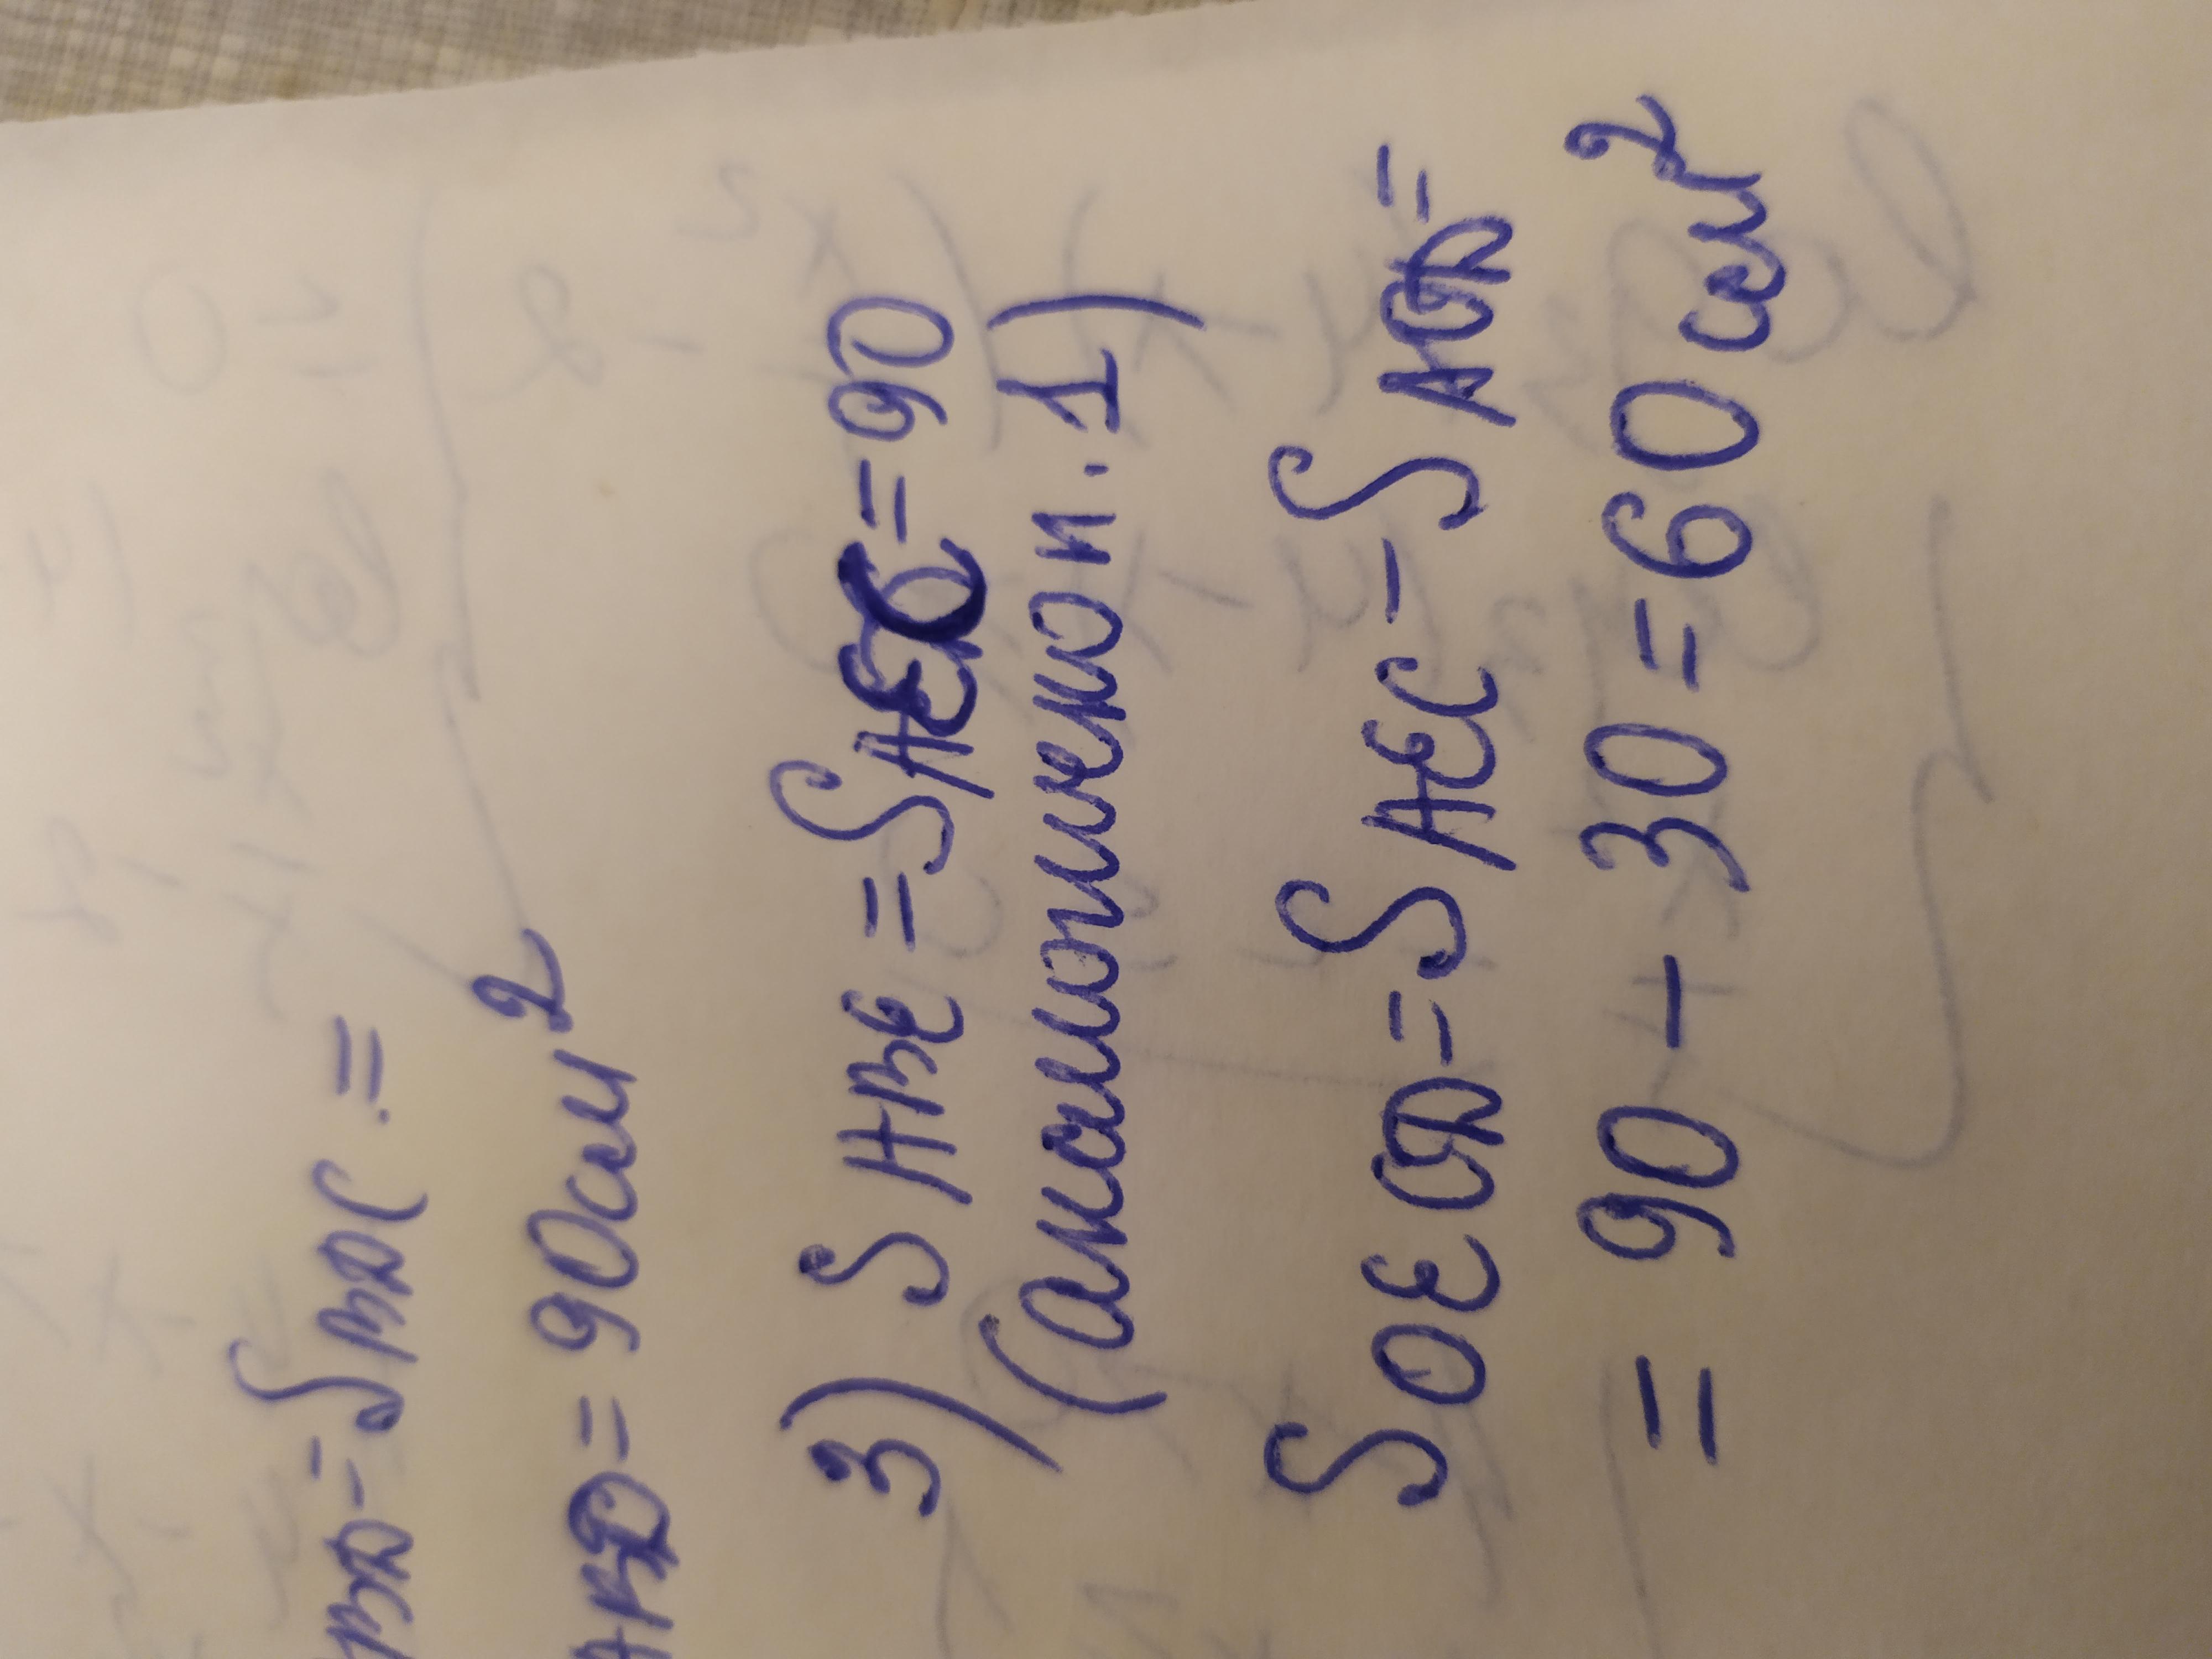 SABD = SBDC =
SABD = 90 см²
3) SABE = SAEC = 90
(аналогично п. 1)
SOECD = SAEC - SAOD =
= 90 - 30 = 60 см²